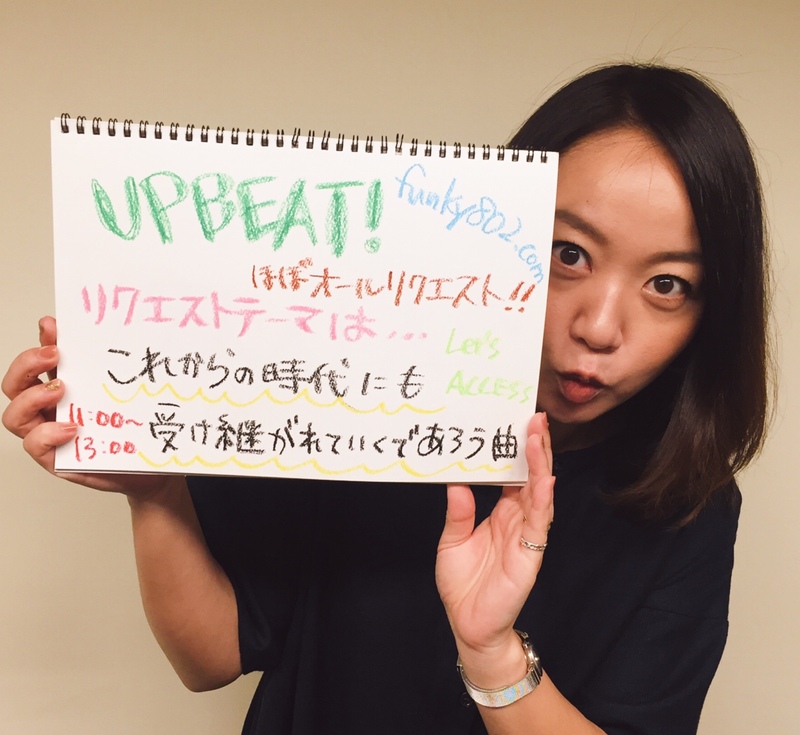 UPBEAT!
funky802.com
ほぼオールリクエスト!!
リクエストテーマは...
Let's
ACCESS
これからの時代にも
11:00~
13:00
受け継がれていくであろう曲